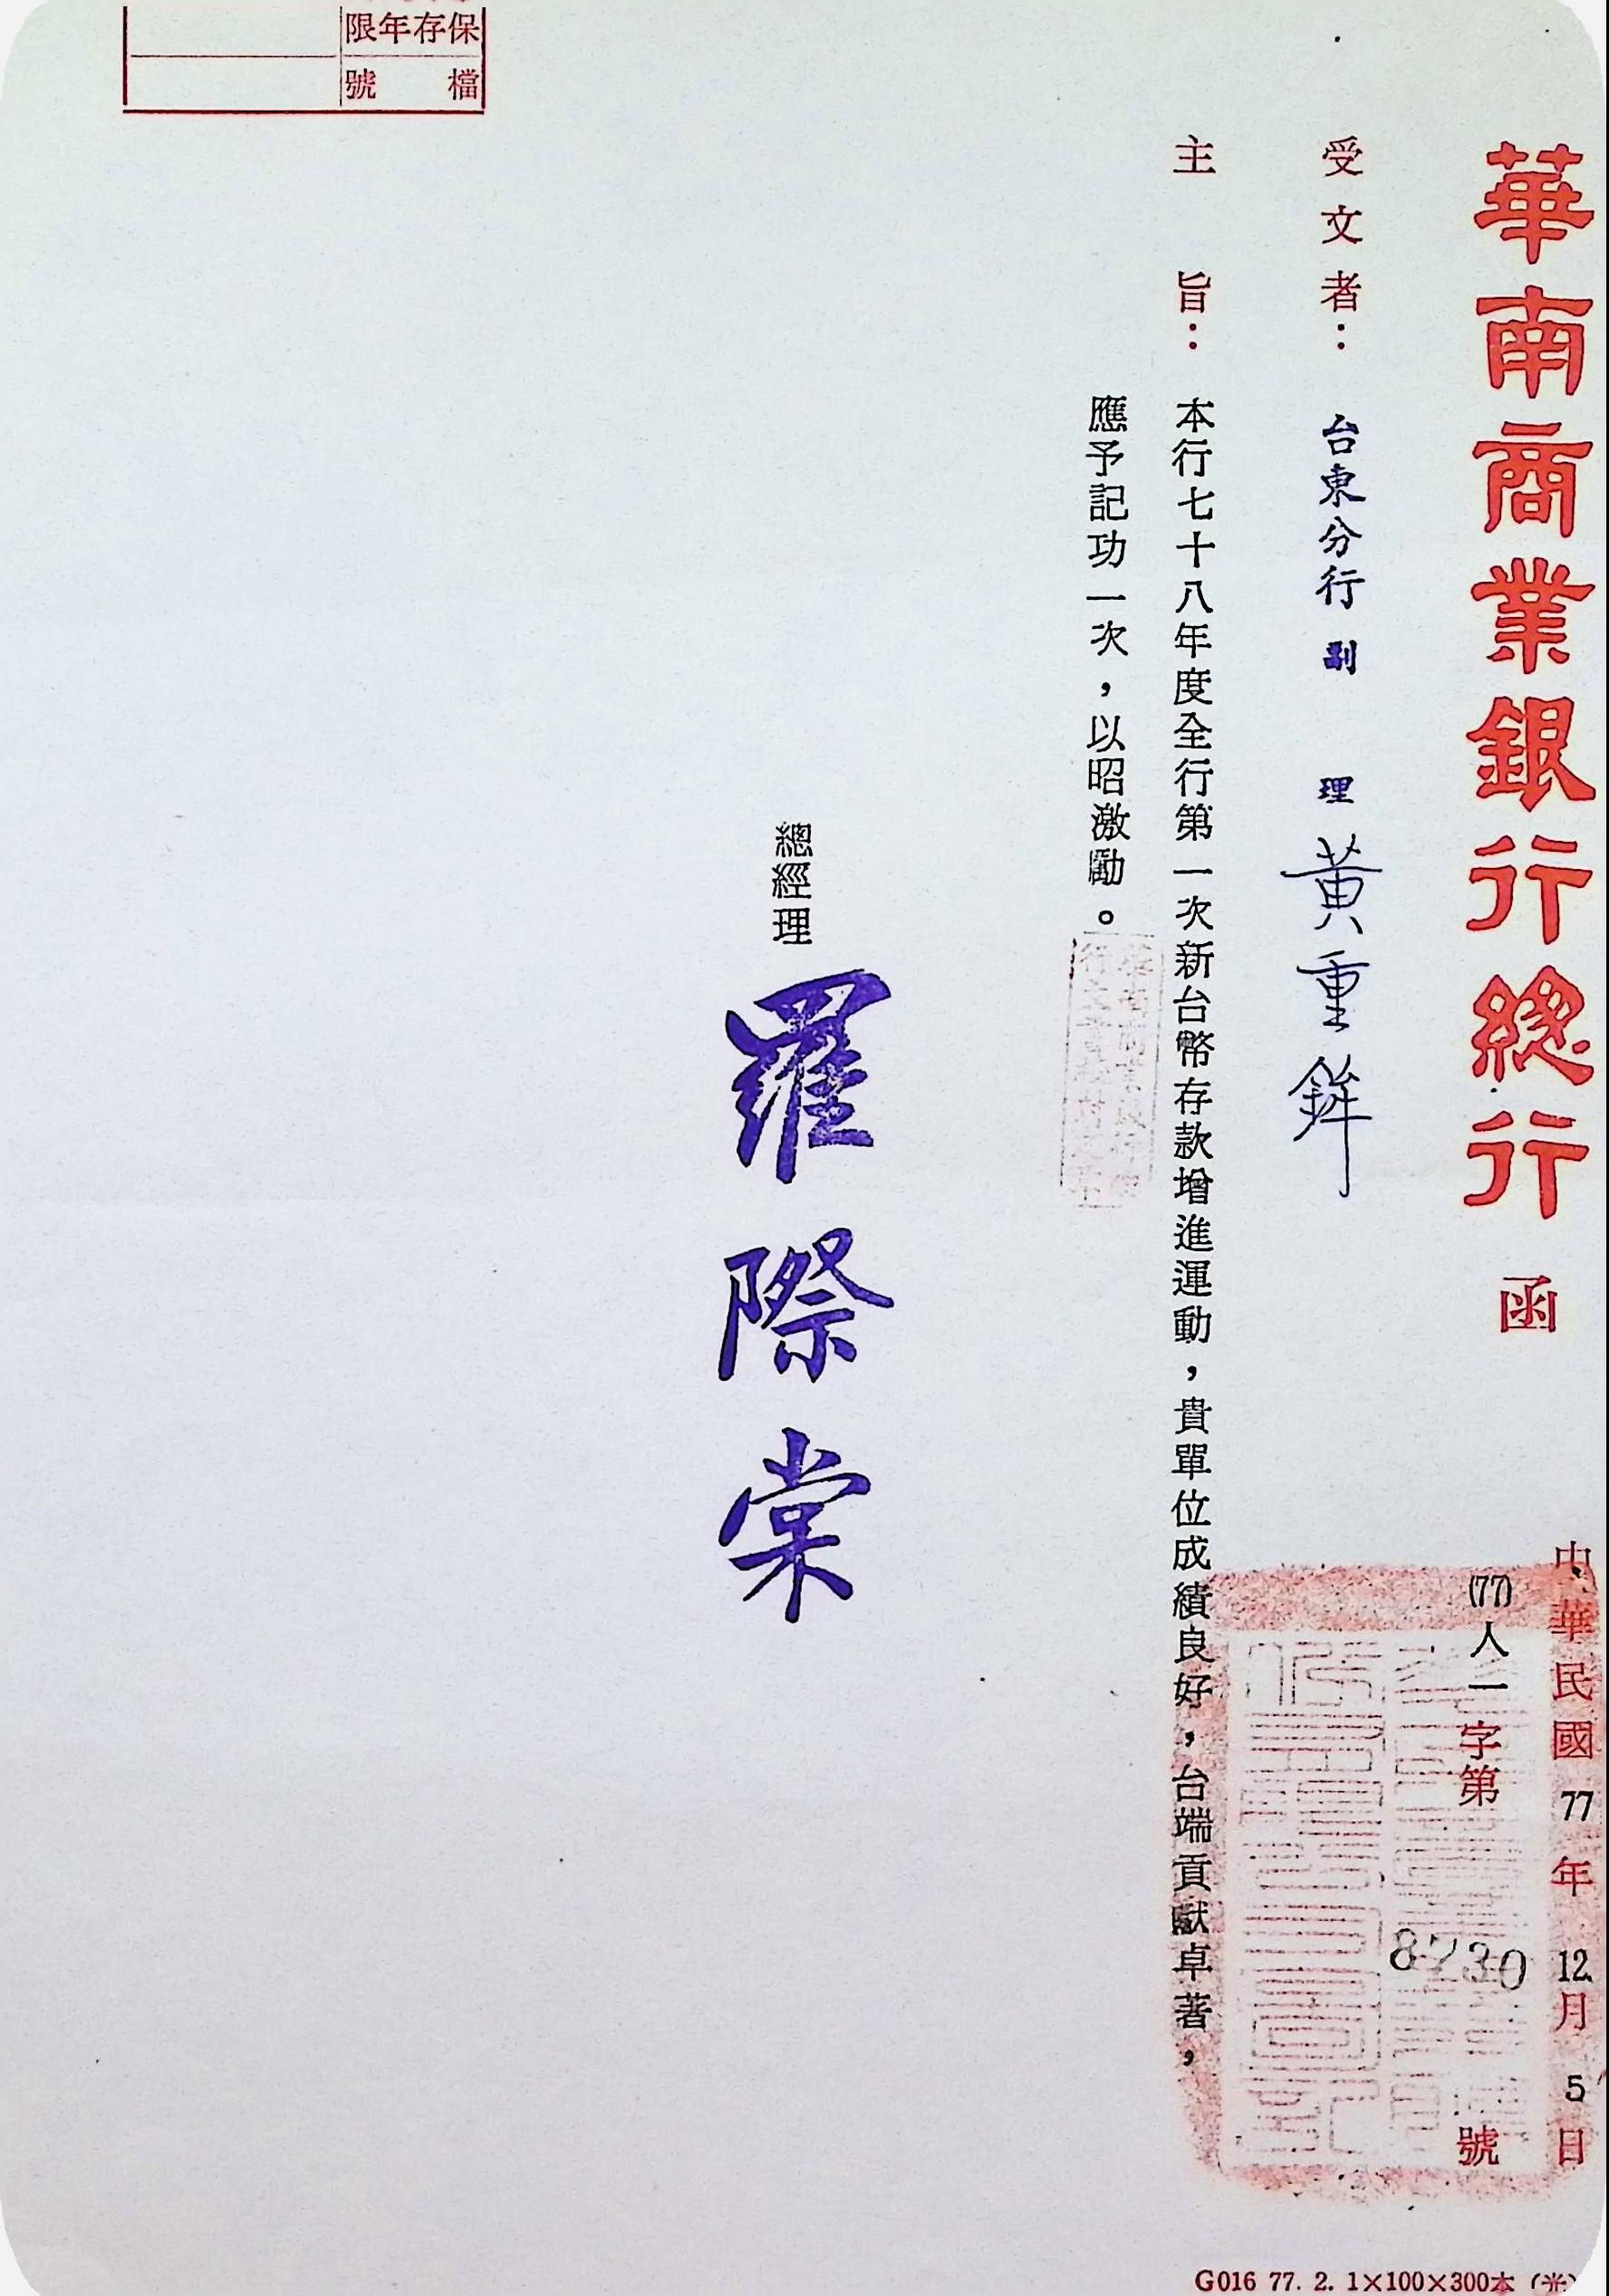 華南商業銀行總行 函
中華民國77年12月5日
(77)人一字第8730號
受文者：台東分行副理黃重鉾
主旨：本行七十八年度全行第一次新台幣存款增進運動，貴單位成績良好，台端貢獻卓著，
應予記功一次，以昭激勵。
總經理 羅際棠
保存年限
檔號
G016 77. 2. 1×100×300本 (米)